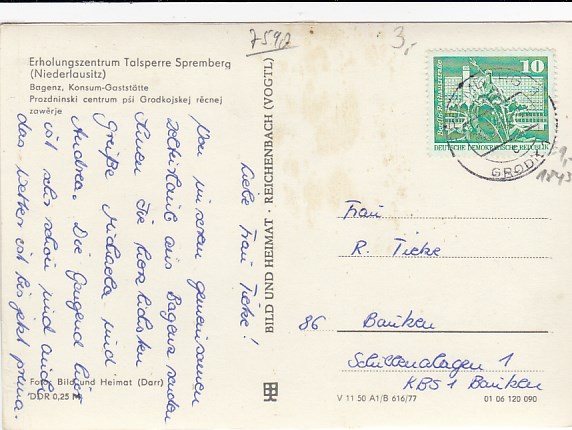 7592
3,-
Erholungszentrum Talsperre Spremberg
(Niederlausitz)
Bagenz, Konsum-Gaststätte
Prozdninski centrum pśi Grodkojskej rěcnej
zawěrje
10
Berlin, Rathausstraße
DEUTSCHE DEMOKRATISCHE REPUBLIK
GRODK
1843
BILD UND HEIMAT · REICHENBACH (VOGTL)
Liebe Frau Tieke!
Von unserem gemeinsamen
Zelturlaub aus Bagenz senden
Ihnen die herzlichsten
Grüße Michaela und
Andrea. Die Gegend hier
ist sehr schön und auch
das Wetter ist bis jetzt prima.
Frau
R. Tieke
86 Bautzen
Schillerallagen 1
KBS 1 Bautzen
Foto: Bild und Heimat (Darr)
DDR 0,25 M
V 11 50 A1/B 616/77
01 06 120 090